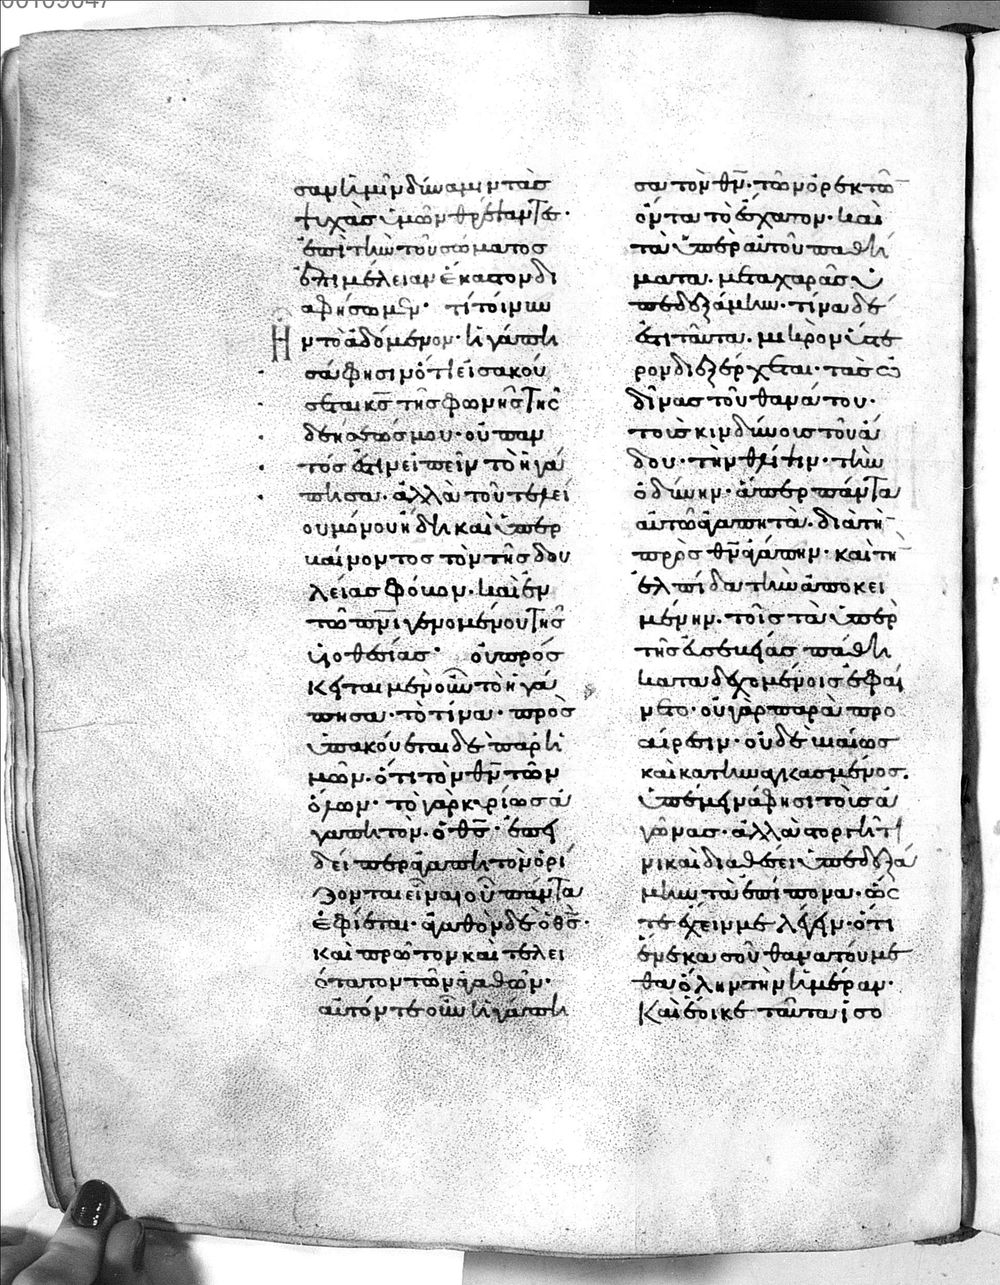 σαν ἡμῖν δύναμιν τὰς
ψυχὰς ὑμῶν θρέψαντες·
ἐπὶ τὴν τοῦ σώματος
ἐπιμέλειαν ἕκαστον δι
αφήσωμεν· τί τοίνυν
ἦν τὸ ἀδόμενον· ἠγάπη
σά φησιν ὅτι εἰσακού
σεται κς τῆς φωνῆς τῆς
δεήσεώς μου· οὐ παν
τός ἐστιν εἰπεῖν τὸ ἠγά
πησα· ἀλλὰ τοῦ τελεί
ου μόνου ἤδη καὶ ὑπερ
βαίνοντος τὸν τῆς δου
λείας φόβον· καὶ ἐν
τῷ πνι γενομένου τῆς
υἱοθεσίας· οὐ πρόσ
κειται μὲν οὖν τὸ ἠγά
πησα· τὸ τίνα· προσ
υπακούεται δὲ παρ' ἡ
μῶν· ὅτι τὸν θν τῶν
ὅλων· τὸ γὰρ κυρίως ἀ
γαπητὸν· ὁ θς· ἐπει
δείπερ ἀγαπητὸν ὁρί
ζονται εἶναι οὗ πάντα
ἐφίεται· ἀγαθὸν δὲ ὁ θς·
καὶ πρῶτον καὶ τελει
ότατον τῶν ἀγαθῶν·
αὐτόν τε οὖν ἠγάπη
σα τὸν θν· τῶν ὀρεκτῶν
ὄντα τὸ ἔσχατον· καὶ
τὰ ὑπὲρ αὐτοῦ παθή
ματα· μετὰ χαρᾶς ὑ
πεδεξάμην· τίνα δέ
ἐστι ταῦτα· μικρὸν ὕστε
ρον διεξέρχεται· τὰς ὠ
δῖνας τοῦ θανάτου·
τοὺς κινδύνους τοῦ ἅ
δου· τὴν θλίψιν· τὴν
ὀδύνην· ἅπερ πάντα
αὐτῷ ἀγαπητὰ· διὰ τὴν
πρὸς θν ἀγάπην· καὶ τὴν
ἐλπίδα τὴν ἀποκει
μένην· τοῖς τὰ ὑπὲρ
τῆς εὐσεβείας παθή
ματα δεχομένοις ἐφαί
νετο· οὐ γὰρ παρὰ προ
αίρεσιν· οὐδὲ βιαίως
καὶ κατηναγκασμένος·
ὑπέμεινά φησι τοὺς ἀ
γῶνας· ἀλλὰ στοργῇ τι
νι καὶ διαθέσει ὑπεδεξά
μην τὰ ἐπίπονα· ὥς
τε ἔχειν με λέγειν· ὅτι
ἕνεκα σοῦ θανατούμε
θα ὅλην τὴν ἡμέραν·
Καὶ ἔοικε ταῦτα ἰσο